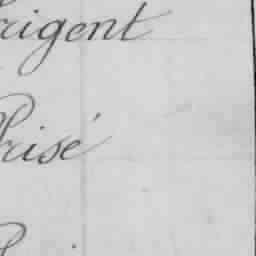 rigent
Prisé